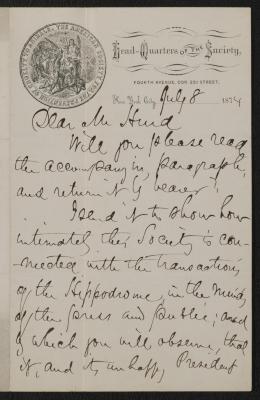 THE AMERICAN SOCIETY FOR THE PREVENTION OF CRUELTY TO ANIMALS.
Head-Quarters OF THE Society,
FOURTH AVENUE, COR. 22D STREET,
New York City, July 8 1874
Dear Mr Hurd
Will you please read
the accompanying paragraph,
and return it by bearer!
I send it to show how
intimately this Society is con-
nected with the transactions
of the Hippodrome, in the minds
of the press and public; and
of which you will observe, that
it, and its unhappy President